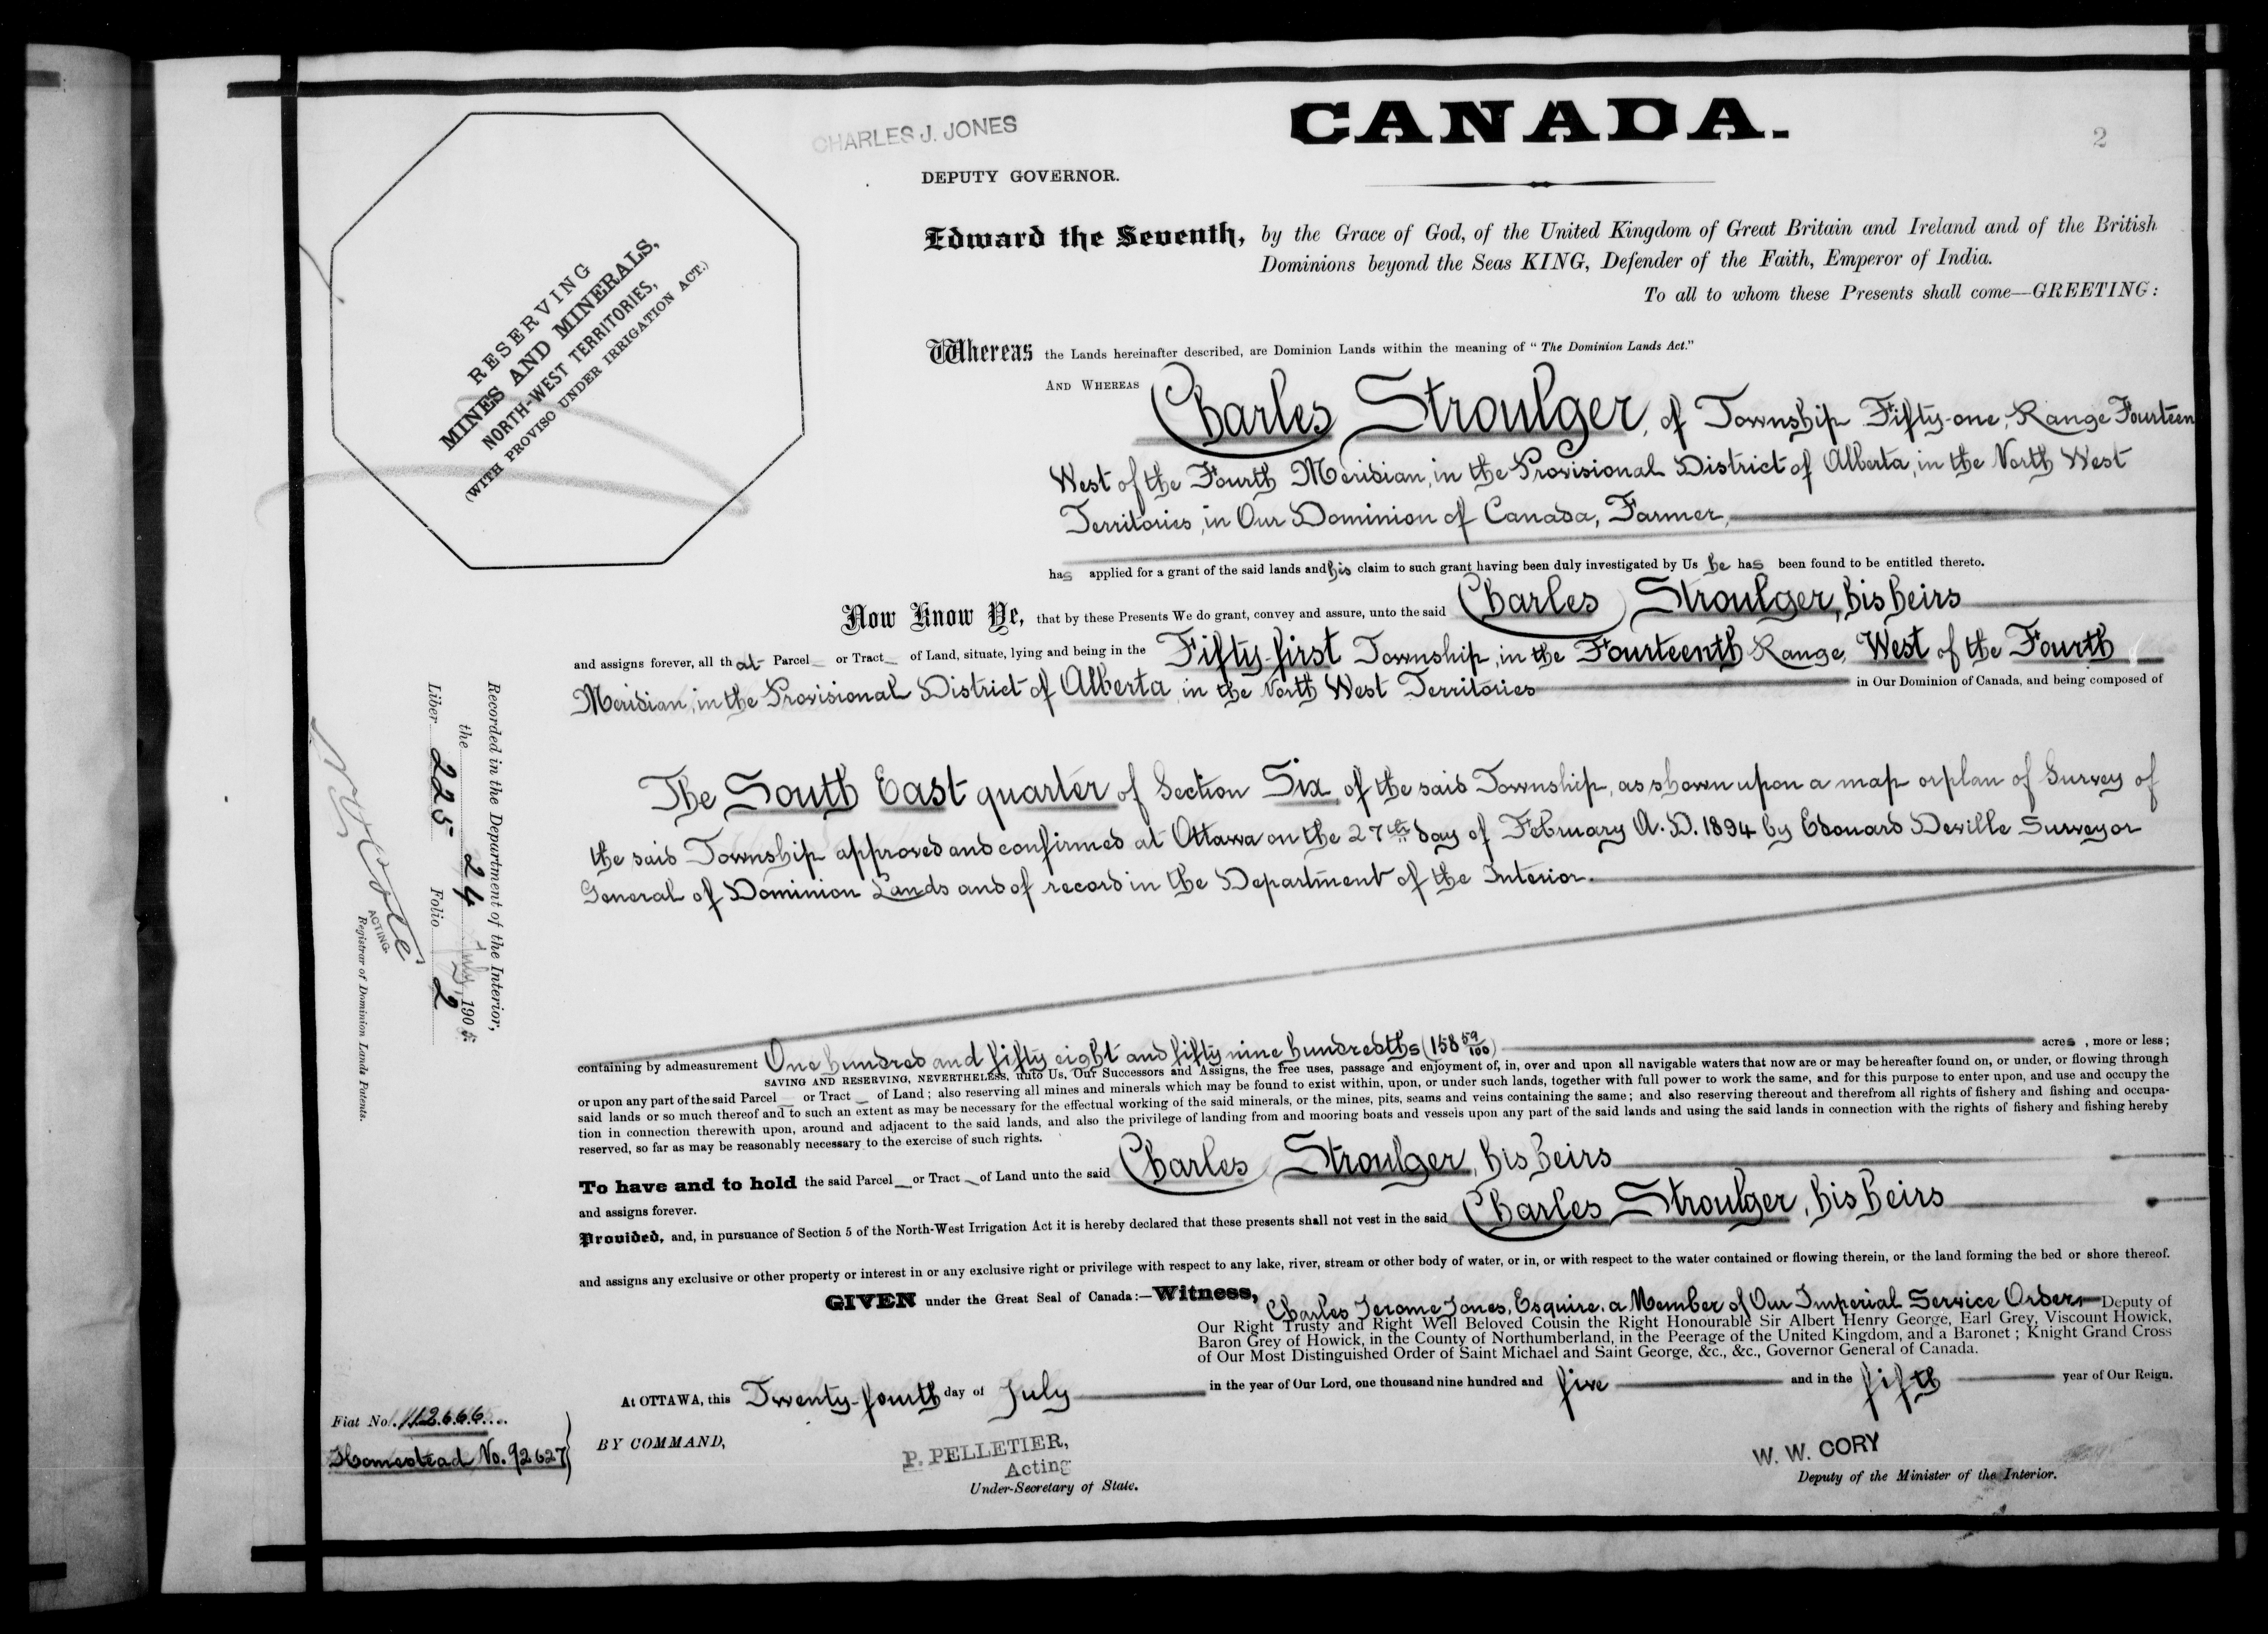 CHARLES J. JONES
CANADA.
2
DEPUTY GOVERNOR.
RESERVING
MINES AND MINERALS,
NORTH-WEST TERRITORIES,
(WITH PROVISO UNDER IRRIGATION ACT.)
Edward the Seventh, by the Grace of God, of the United Kingdom of Great Britain and Ireland and of the British
Dominions beyond the Seas KING, Defender of the Faith, Emperor of India.
To all to whom these Presents shall come—GREETING:
Whereas the Lands hereinafter described, are Dominion Lands within the meaning of "The Dominion Lands Act."
AND WHEREAS Charles Stroulger, of Township Fifty-one, Range Fourteen
West of the Fourth Meridian, in the Provisional District of Alberta, in the North West
Territories, in Our Dominion of Canada, Farmer,
has applied for a grant of the said lands and his claim to such grant having been duly investigated by Us he has been found to be entitled thereto.
Now Know Ye, that by these Presents We do grant, convey and assure, unto the said Charles Stroulger, his heirs
and assigns forever, all that Parcel or Tract of Land, situate, lying and being in the Fifty-first Township, in the Fourteenth Range, West of the Fourth
Meridian, in the Provisional District of Alberta, in the North West Territories in Our Dominion of Canada, and being composed of
The South East quarter of Section Six, of the said Township, as shown upon a map or plan of Survey of
the said Township approved and confirmed at Ottawa on the 27th day of February A.D. 1894 by Edouard Deville Surveyor
General of Dominion Lands and of record in the Department of the Interior.
containing by admeasurement One hundred and fifty eight and fifty nine hundredths (158 59/100) acres, more or less;
SAVING AND RESERVING, NEVERTHELESS, unto Us, Our Successors and Assigns, the free uses, passage and enjoyment of, in, over and upon all navigable waters that now are or may be hereafter found on, or under, or flowing through
or upon any part of the said Parcel or Tract of Land; also reserving all mines and minerals which may be found to exist within, upon, or under such lands, together with full power to work the same, and for this purpose to enter upon, and use and occupy the
said lands or so much thereof and to such an extent as may be necessary for the effectual working of the said minerals, or the mines, pits, seams and veins containing the same; and also reserving thereout and therefrom all rights of fishery and fishing and occupa-
tion in connection therewith upon, around and adjacent to the said lands, and also the privilege of landing from and mooring boats and vessels upon any part of the said lands and using the said lands in connection with the rights of fishery and fishing hereby
reserved, so far as may be reasonably necessary to the exercise of such rights.
To have and to hold the said Parcel or Tract of Land unto the said Charles Stroulger, his heirs
and assigns forever.
Provided, and, in pursuance of Section 5 of the North-West Irrigation Act it is hereby declared that these presents shall not vest in the said Charles Stroulger, his heirs
and assigns any exclusive or other property or interest in or any exclusive right or privilege with respect to any lake, river, stream or other body of water, or in, or with respect to the water contained or flowing therein, or the land forming the bed or shore thereof.
GIVEN under the Great Seal of Canada:—Witness, Charles Jerome Jones, Esquire, a Member of Our Imperial Service Order Deputy of
Our Right Trusty and Right Well Beloved Cousin the Right Honourable Sir Albert Henry George, Earl Grey, Viscount Howick,
Baron Grey of Howick, in the County of Northumberland, in the Peerage of the United Kingdom, and a Baronet; Knight Grand Cross
of Our Most Distinguished Order of Saint Michael and Saint George, &c., &c., Governor General of Canada.
At OTTAWA, this Twenty-fourth day of July in the year of Our Lord, one thousand nine hundred and five and in the fifth year of Our Reign.
BY COMMAND,
P. PELLETIER,
Acting
Under-Secretary of State.
W. W. CORY
Deputy of the Minister of the Interior.
Fiat No. 112666
Homestead No. 92627
Recorded in the Department of the Interior,
the 24 July, 1905
Liber 225 Folio 2
ACTING
Registrar of Dominion Lands Patents.